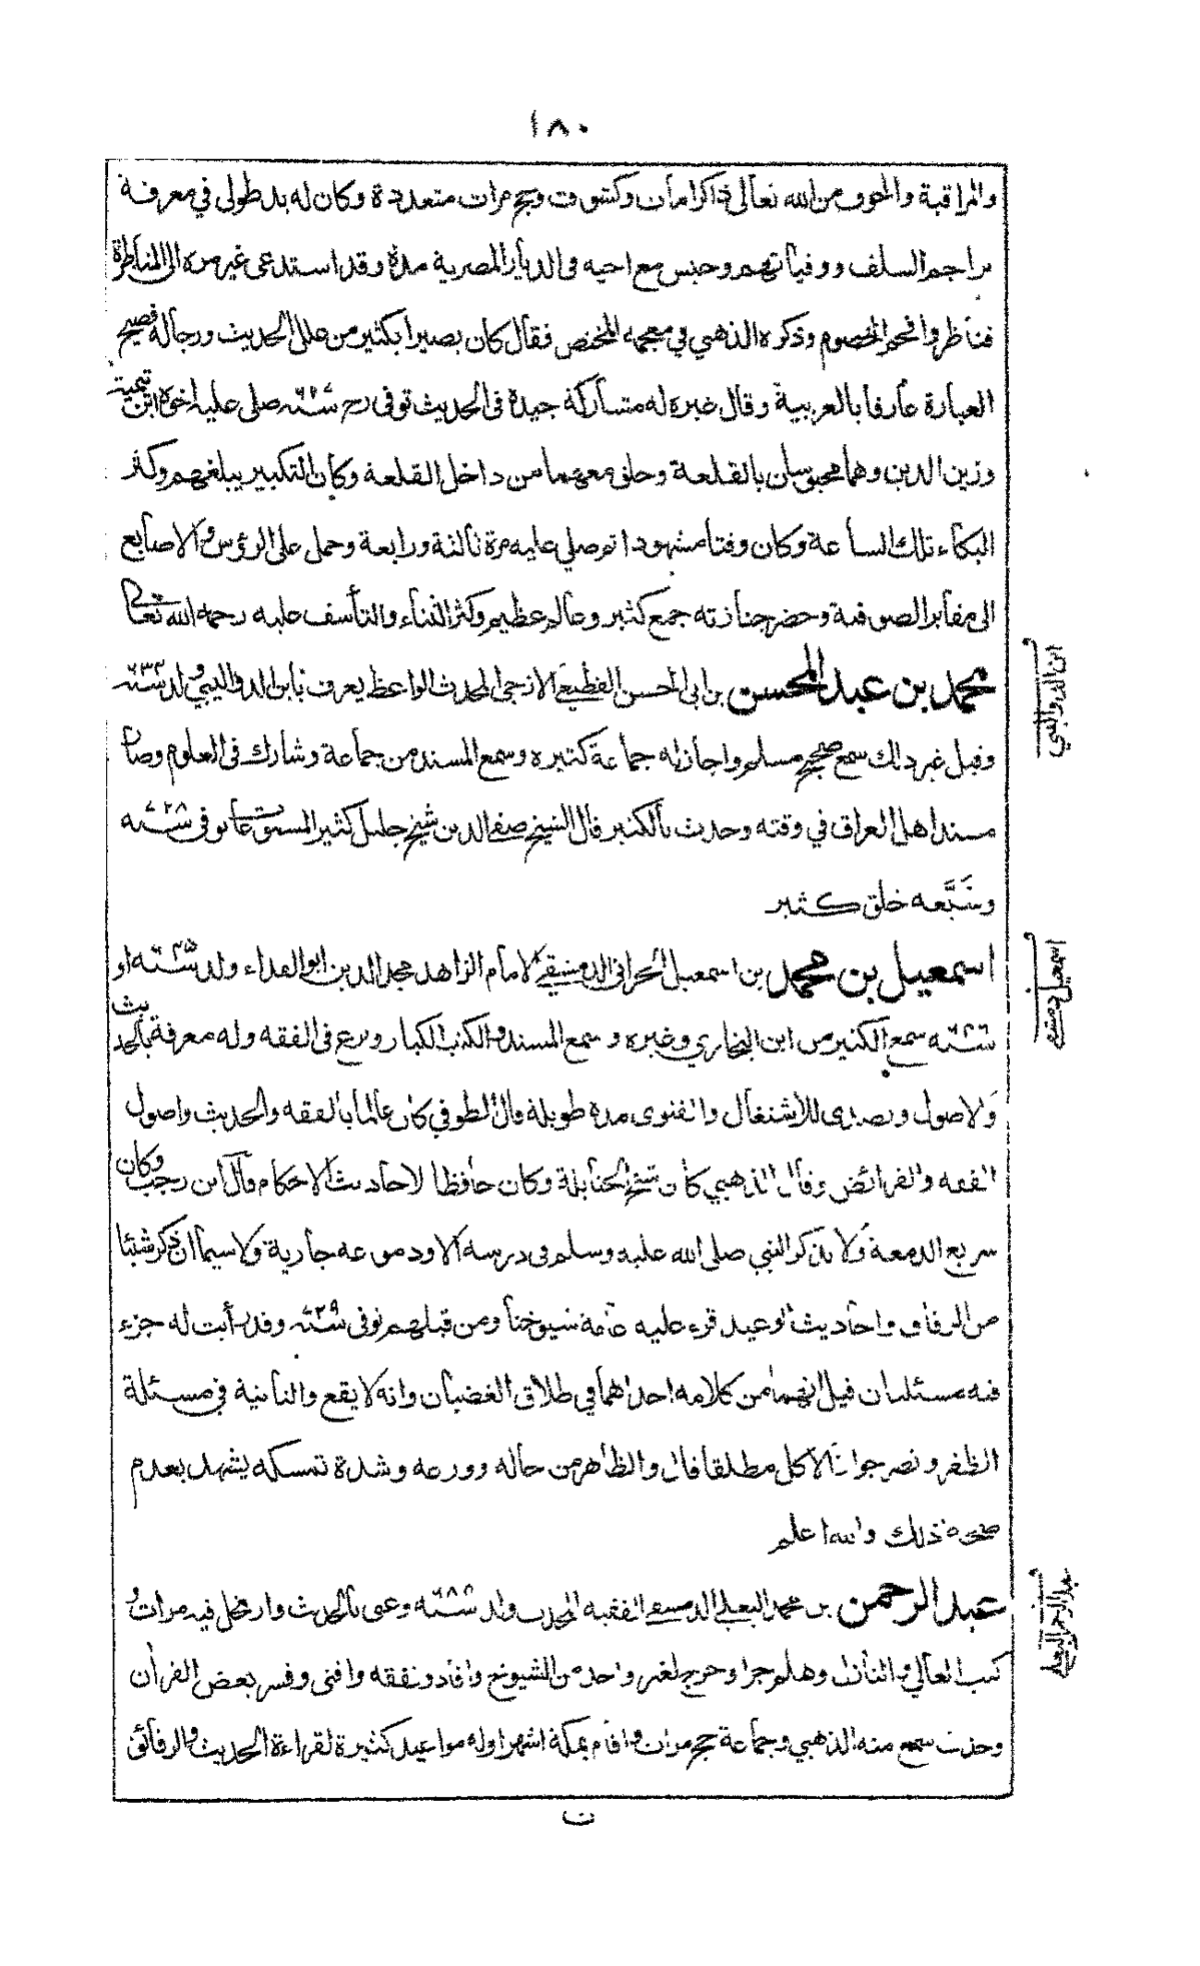 ١٨٠
والمراقبة والخوف من الله تعالى ذا كرامات وكشوف وحج مرات متعددة وكان له يد طولى في معرفة
تراجم السلف ووفياتهم وحبس مع اخيه في الديار المصرية مدة وقد استدعى غير مرة الى المناظرة
فناظر وافحم الخصوم وذكره الذهبي في معجمه المختص فقال كان بصيرا بكثير من علل الحديث ورجاله فصيح
العبارة عارفا بالعربية وقال غيره له مشاركة جيدة في الحديث توفى رح سنة ٧٢٧ صلى عليه اخوه ابن تيمية
وزين الدين وهما محبوسان بالقلعة وخلق معهما من داخل القلعة وكان التكبير يبلغهم وكثر
البكاء تلك الساعة وكان وقتا مشهودا ثم صلي عليه مرة ثالثة ورابعة وحمل على الرؤس والاصابع
الى مقابر الصوفية وحضر جنازته جمع كثير وعالم عظيم وكثر الثناء والتأسف عليه رحمه الله تعالى
محمد بن عبد المحسن بن ابي الحسن القطيعي الازجي المحدث الواعظ يعرف بابن الدواليبي ولد سنة ٦٣٤
وقيل غير ذلك سمع صحيح مسلم واجاز له جماعة كثيره وسمع المسند من جماعة وشارك في العلوم وصار
مسند اهل العراق في وقته وحدث بالكثير قال الشيخ صفي الدين شيخ جليل كثير المسموعات توفى سنة ٧٢٨
وشيعه خلق كثير
اسمعيل بن محمد بن اسمعيل الحراني الدمشقي الامام الزاهد مجد الدين ابو الفداء ولد سنة ٦٤٥ او
سنة ٦٤٦ سمع الكثير من ابن البخاري وغيره وسمع المسند والكتب الكبار وبرع في الفقه وله معرفة بالحديث
والاصول وتصدى للاشتغال والفتوى مدة طويلة قال الطوفي كان عالما بالفقه والحديث واصول
الفقه والفرائض وقال الذهبي كان شيخ الحنابلة وكان حافظا لاحاديث الاحكام قال ابن رجب وكان
سريع الدمعة ولا يذكر النبي صلى الله عليه وسلم في درسه الا ودموعه جارية ولا سيما ان ذكر شيئا
من الرقاق واحاديث الوعيد قرء عليه عامة شيوخنا ومن قبلهم توفى سنة ٧٢٩ وقد رأيت له جزء
فيه مسئلتان قيل انهما من كلامه احداهما في طلاق الغضبان وانه لا يقع والثانية في مسئلة
الظفر ونصر جواز الاكل مطلقا قال والظاهر من حاله وورعه وشدة تمسكه يشهد بعدم
صحة ذلك والله اعلم
عبد الرحمن بن محمد البعلي الدمشقي الفقيه المحدث ولد سنة ٦٨٥ وعنى بالحديث وارتحل فيه مرات و
كتب العالي والنازل وهلم جرا وخرج لغير واحد من الشيوخ وافاد وتفقه وافتى وفسر بعض القرآن
وحدث سمع منه الذهبي وجماعة حج مرات واقام بمكة اشهرا وله مواعيد كثيرة لقراءة الحديث والرقائق
ابن الدواليبي
اسمعيل دمشقي
عبد الرحمن البعلي